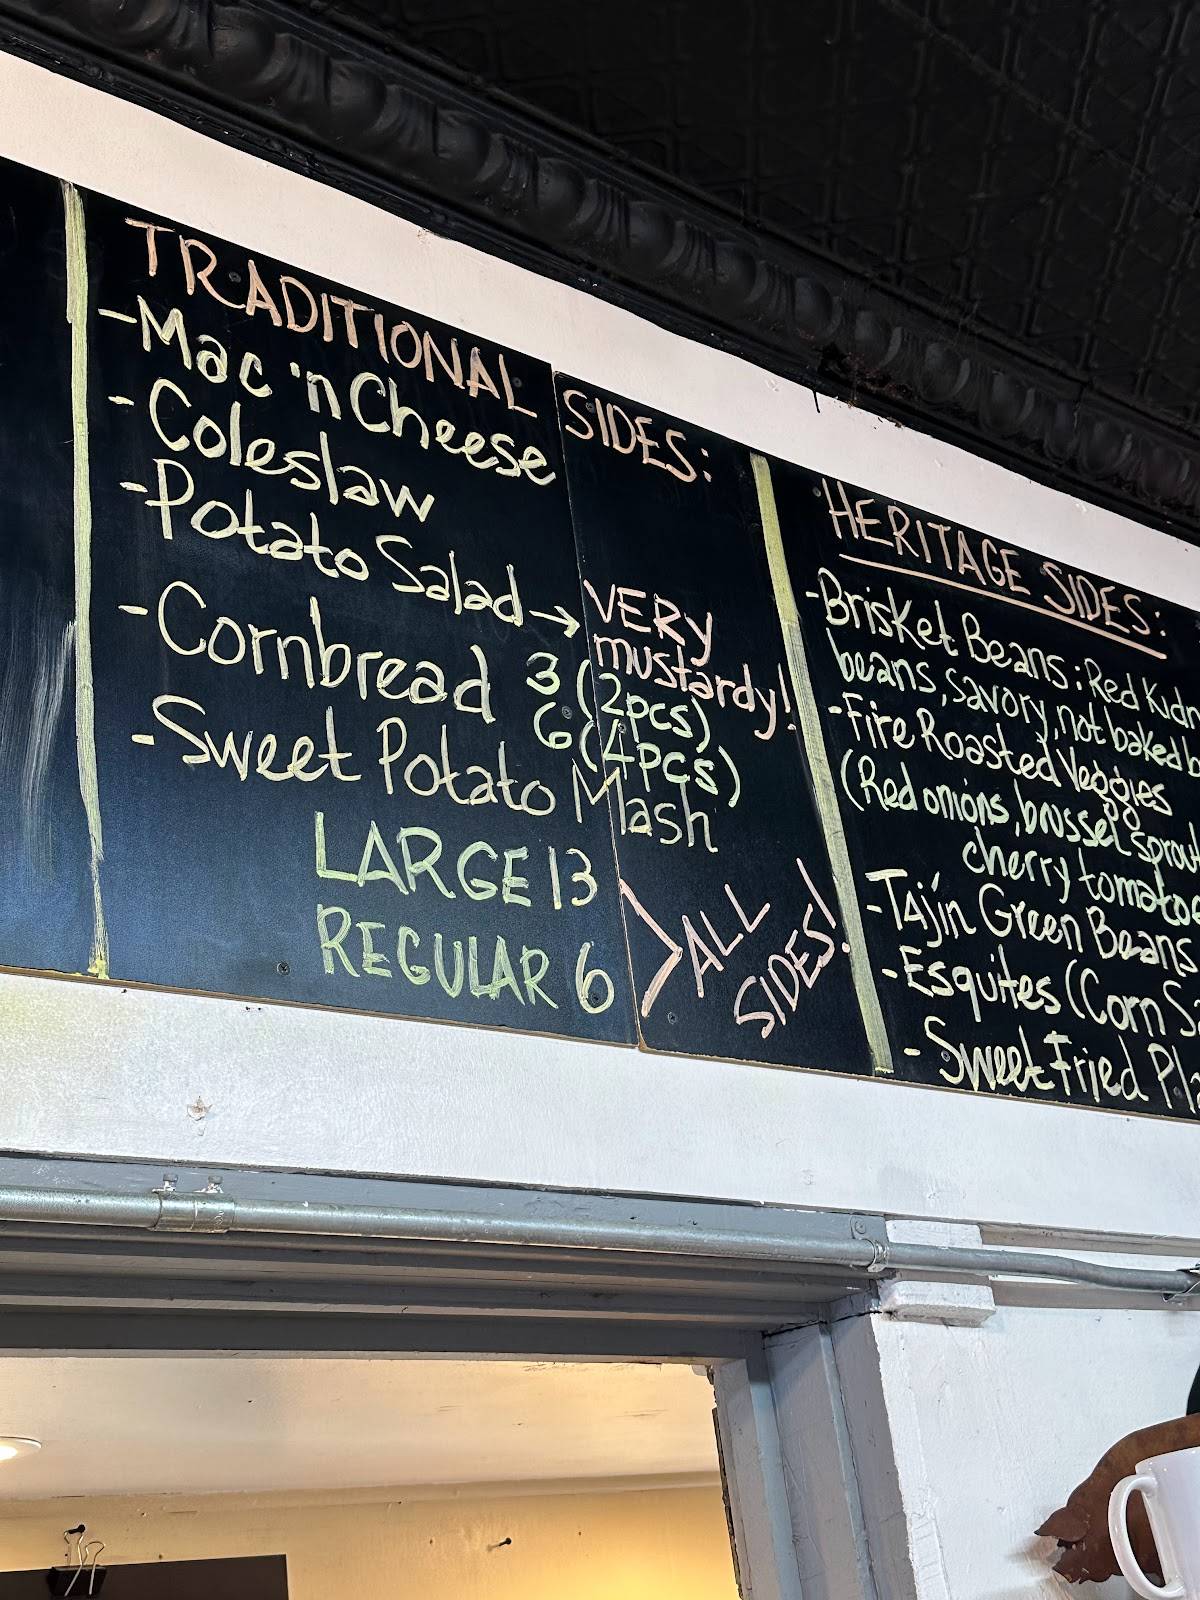 TRADITIONAL SIDES:
-Mac 'n Cheese
-Coleslaw
-Potato Salad → VERY
mustardy!
-Cornbread 3 (2pcs)
6 (4pcs)
-Sweet Potato Mash
LARGE 13
REGULAR 6
>ALL
SIDES!
HERITAGE SIDES:
-Brisket Beans: Red Kidn
beans, savory, not baked b
-Fire Roasted Veggies
(Red onions, brussel sprout
cherry tomatoe
-Tajín Green Beans
-Esquites (Corn S
-Sweet Fried Pla